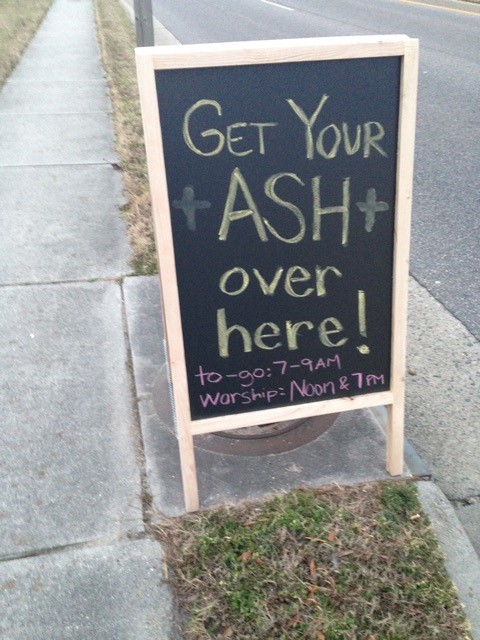 Get Your
+ ASH +
over
here!
to-go: 7-9AM
Worship: Noon & 7PM